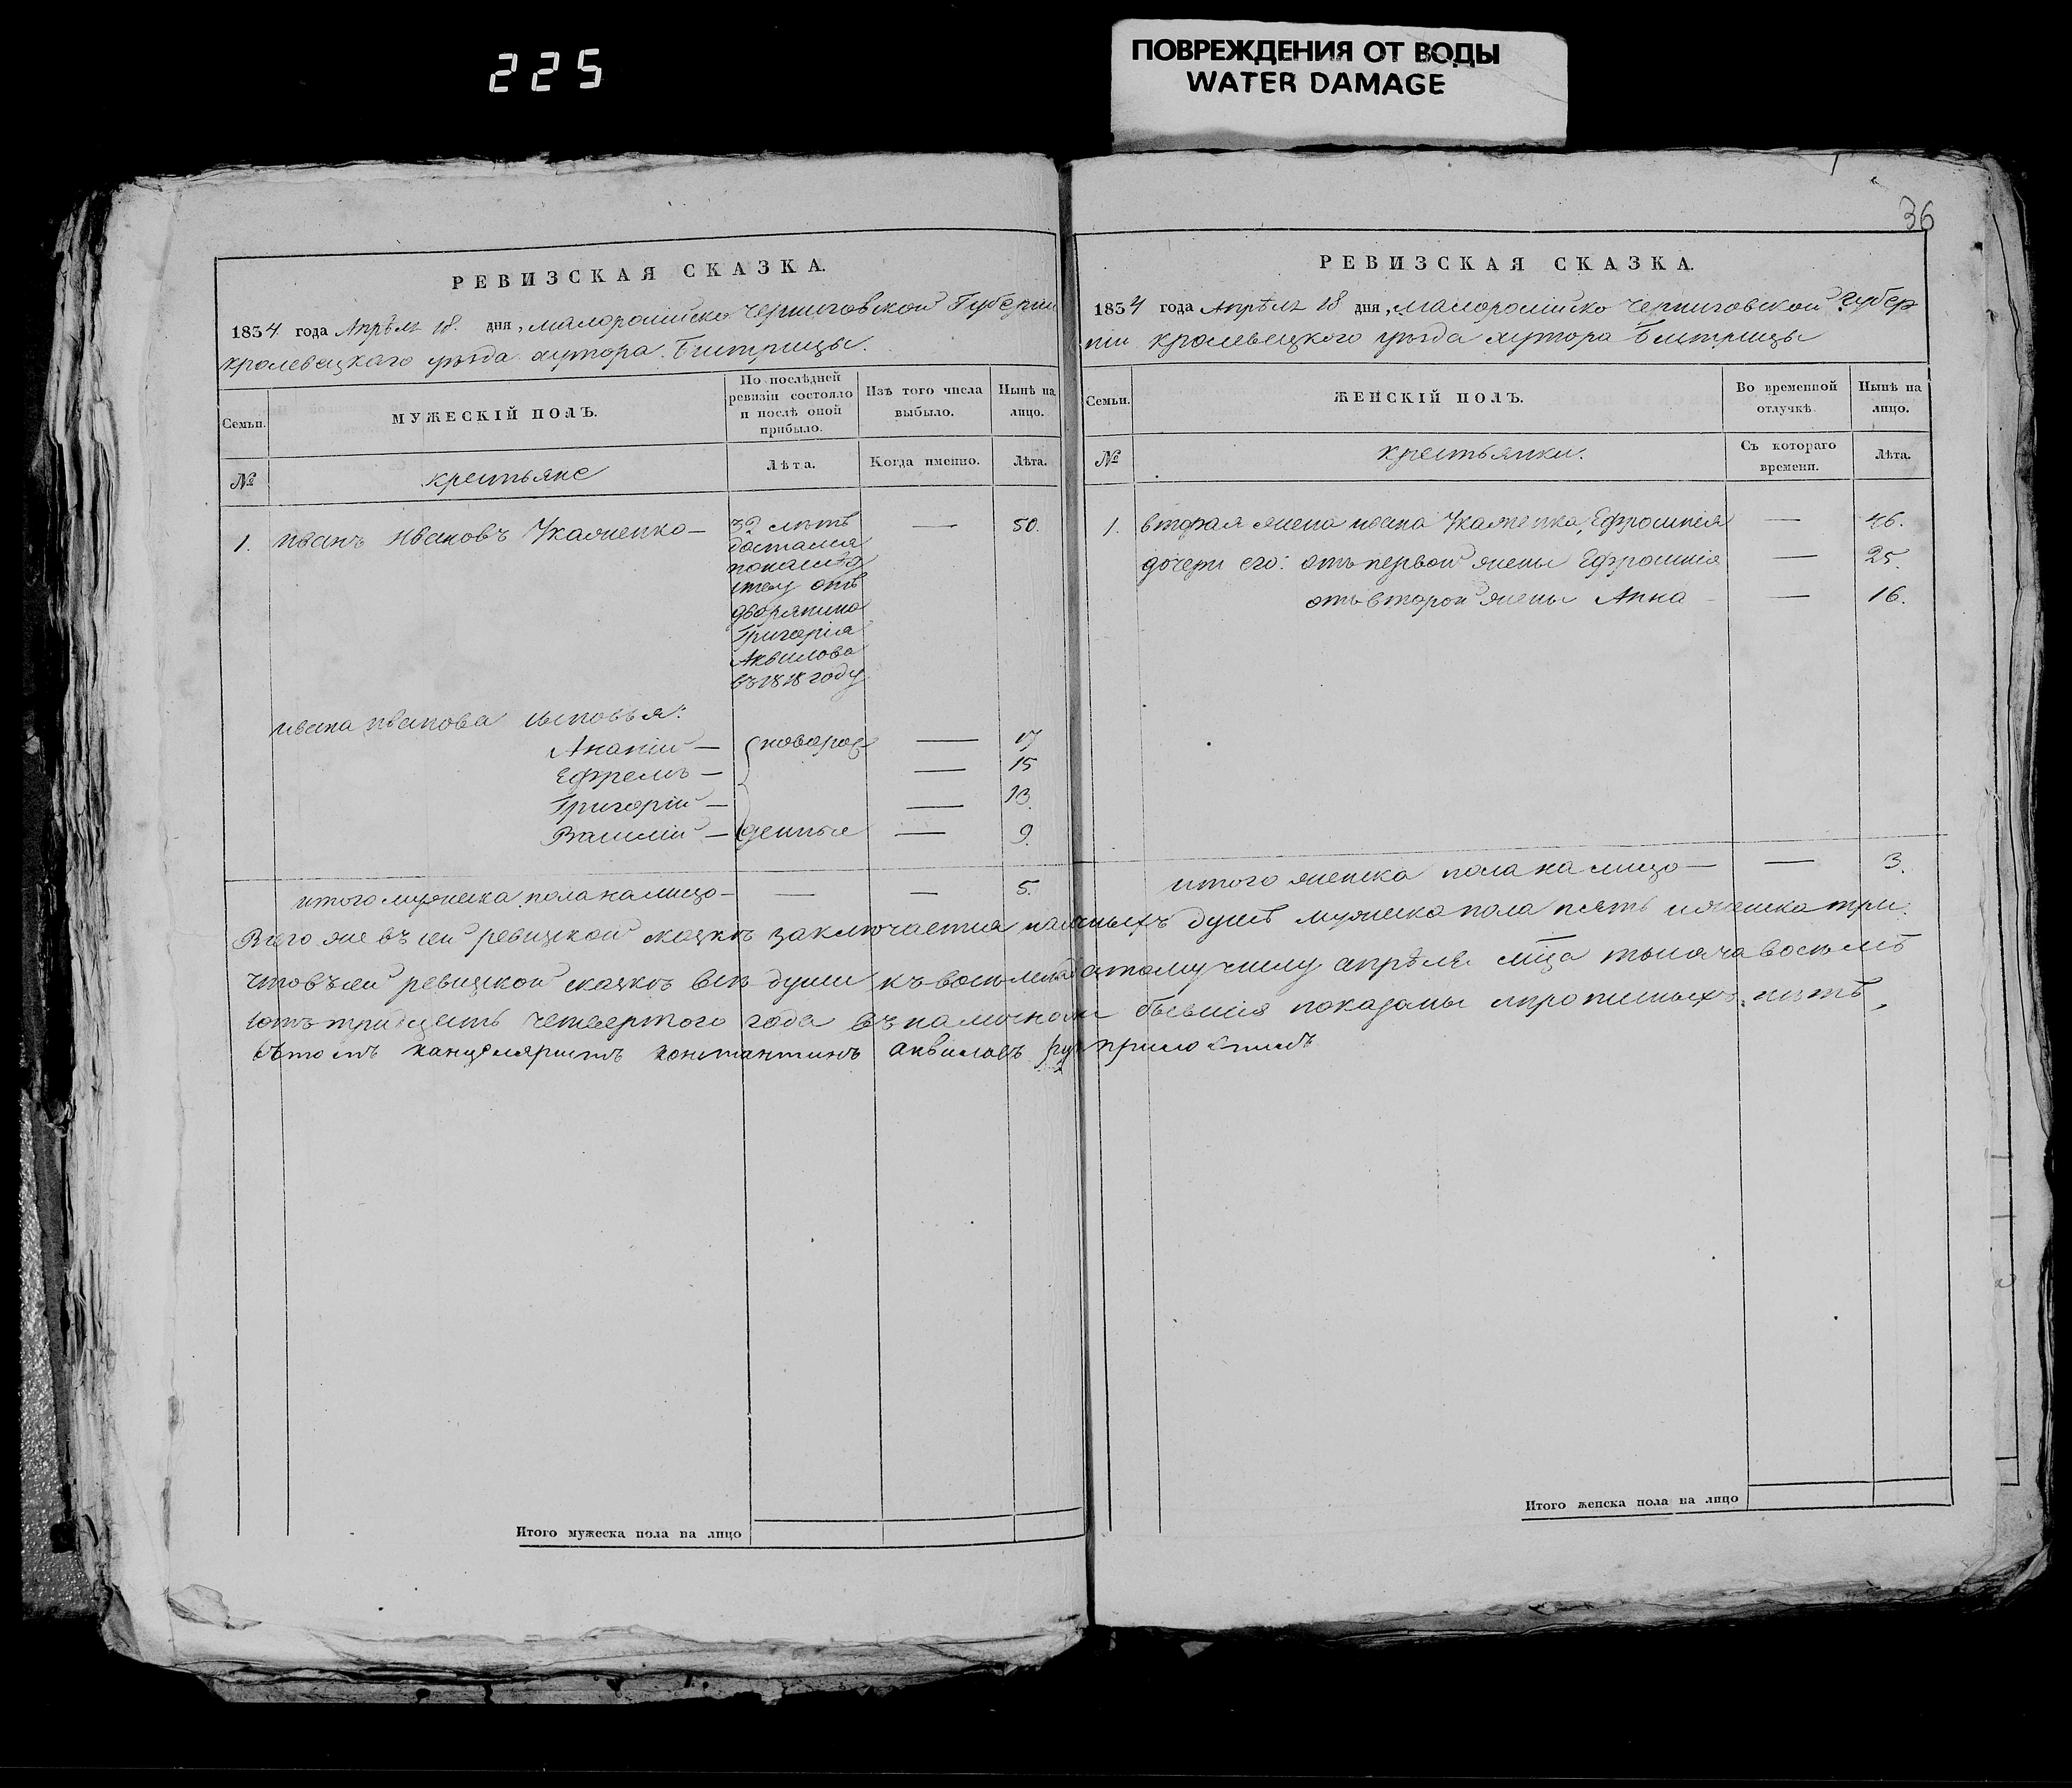 225
ПОВРЕЖДЕНИЯ ОТ ВОДЫ
WATER DAMAGE
РЕВИЗСКАЯ СКАЗКА.
1834 года Апрѣля 18. дня, малоросийско Черниговской Губернии
кролевецкаго уѣзда хутора Быстрицы.
Семьи.
МУЖЕСКІЙ ПОЛЪ.
По послѣдней ревизіи состояло и послѣ оной прибыло.
Изъ того числа выбыло.
Нынѣ на лицо.
№
крестьяне
Лѣта.
Когда именно.
Лѣта.
1. иванъ ивановъ — 50.
лѣтъ
достался
отъ
дворянина
Григорія
Аквилова
въ 1818 году
ивана иванова сыновья:
Ананій — новорож — 17
Ефремъ — — 15
Григорій — — 13.
Василій — денныя — 9.
итого мужеска пола на лицо — — — 5.
36
РЕВИЗСКАЯ СКАЗКА.
1834 года Апрѣля 18 дня, малоросийско Черниговской губер
нии кролевецкого уѣзда хутора Быстрицы
Семьи.
ЖЕНСКІЙ ПОЛЪ.
Во временной отлучкѣ.
Нынѣ на лицо.
№
крестьянки.
Съ котораго времени.
Лѣта.
1. вторая жена ивана Ефросинія — 46.
дочери его: отъ первой жены Ефросинія — 25.
отъ второй жены Анна — — 16.
итого женска пола на лицо — — 3.
Всего же въ сей ревизской сказкѣ заключается наличныхъ душъ мужеска пола пять и женска три.
что въ сей ревизской сказкѣ всѣ души къ восемнадцатому числу апрѣля мца тысяча восемь
сотъ тридцать четвертого года въ наличности бывшия показаны и прописныхъ нѣтъ,
вѣтомъ канцеляристъ константинъ аквиловъ рук приложилъ
Итого мужеска пола на лицо
Итого женска пола на лицо